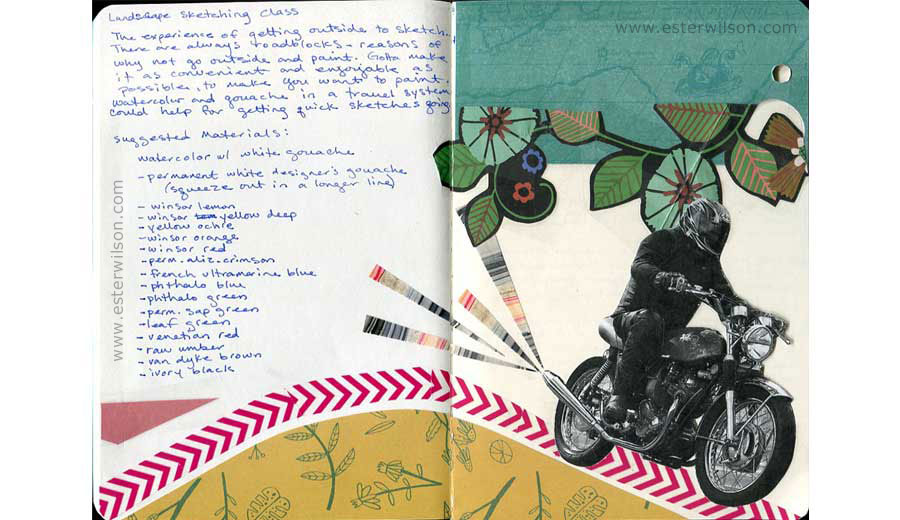 Landscape Sketching Class
The experience of getting outside to sketch.
There are always roadblocks - reasons of
why not go outside and paint. Gotta make
it as convenient and enjoyable as
possible, to make you want to paint.
Watercolor and gouache in a travel system
could help for getting quick sketches going
suggested materials:
watercolor w/ white gouache
- permanent white designer's gouache
(squeeze out in a longer line)
- winsor lemon
- winsor yellow deep
- yellow ochre
- winsor orange
- winsor red
- perm. aliz. crimson
- french ultramarine blue
- phthalo blue
- phthalo green
- perm. sap green
- leaf green
- venetian red
- raw umber
- van dyke brown
- ivory black
www.esterwilson.com
www.esterwilson.com
www.esterwilson.com
www.esterwilson.com
www.esterwilson.com